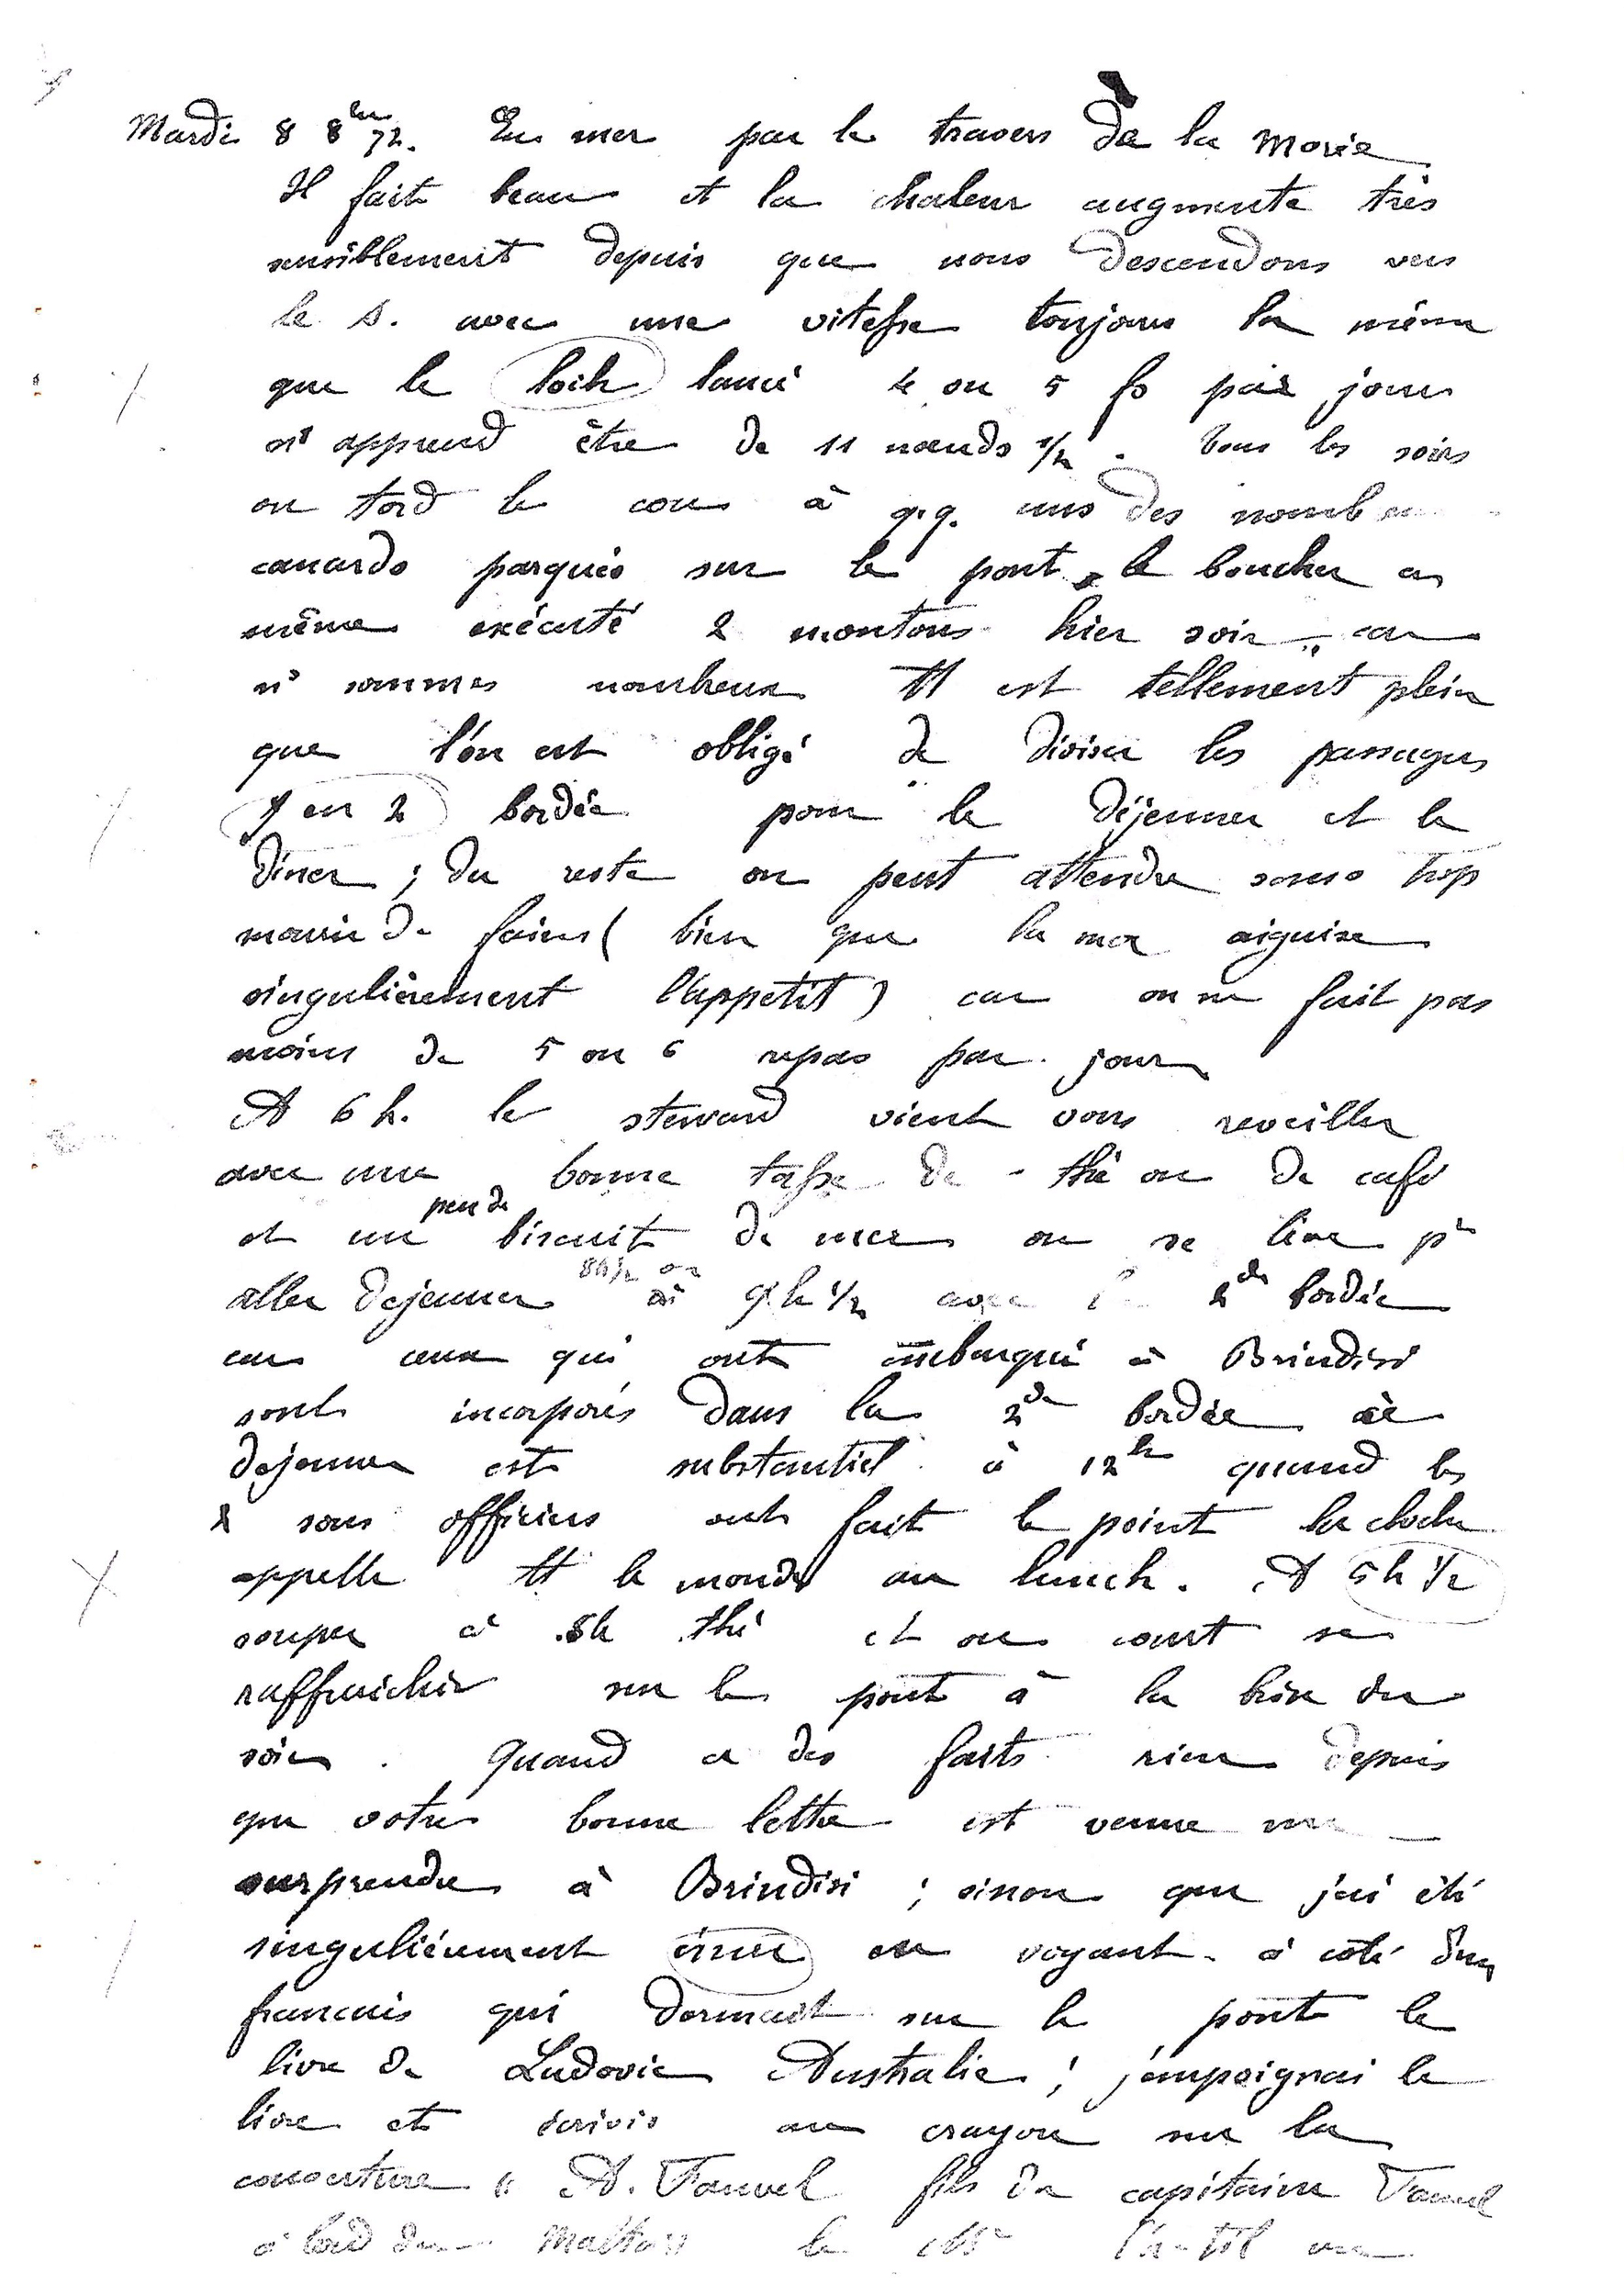 Mardi 8 8bre 72. En mer par le travers de la Morée
Il fait beau et la chaleur augmente très
sensiblement depuis que nous descendons vers
le S. avec une vitesse toujours la même
que le loch lancé 4 ou 5 fs par jour
ns apprend être de 11 nœuds 1/2. Tous les soirs
on tord le cou à q.q. uns des
canards parqués sur le pont, le boucher a
même exécuté 2 moutons hier soir, car
ns sommes nombreux tt est tellement plein
que l'on est obligé de diviser les passagers
en 2 bordée pour le déjeuner et le
diner ; du reste on peut attendre sans trop
mourir de faim ( bien que la mer aiguise
singulièrement l'appetit ) car on ne fait pas
moins de 5 ou 6 repas par jour
A 6 h. le steward vient vous reveiller
avec une bonne tasse de thé ou de café
et un peu de biscuit de mer on se lève pr
aller dejeuner 8h1/2 ou à 9h 1/2 avec la 2de bordée
car ceux qui ont embarqué à Brindisi
sont incorporés dans la 2de bordée ce
dejeuner est substantiel à 12h quand les
2 sous officiers ont fait le point la cloche
appelle tt le monde au lunch. A 5h 1/2
souper à 8h thé et on court se
raffraichir sur le pont à la brise du
soir. Quand a des faits rien depuis
que votre bonne lettre est venue me
surprendre à Brindisi ; sinon que j'ai été
singulièrement ému en voyant à coté d'un
francais qui dormait sur le pont le
livre de Ludovic Australie ; j'empoignai le
livre et écrivis au crayon sur la
couverture " A. Fauvel fils du capitaine Fauvel
à bord du le l'a-t-il